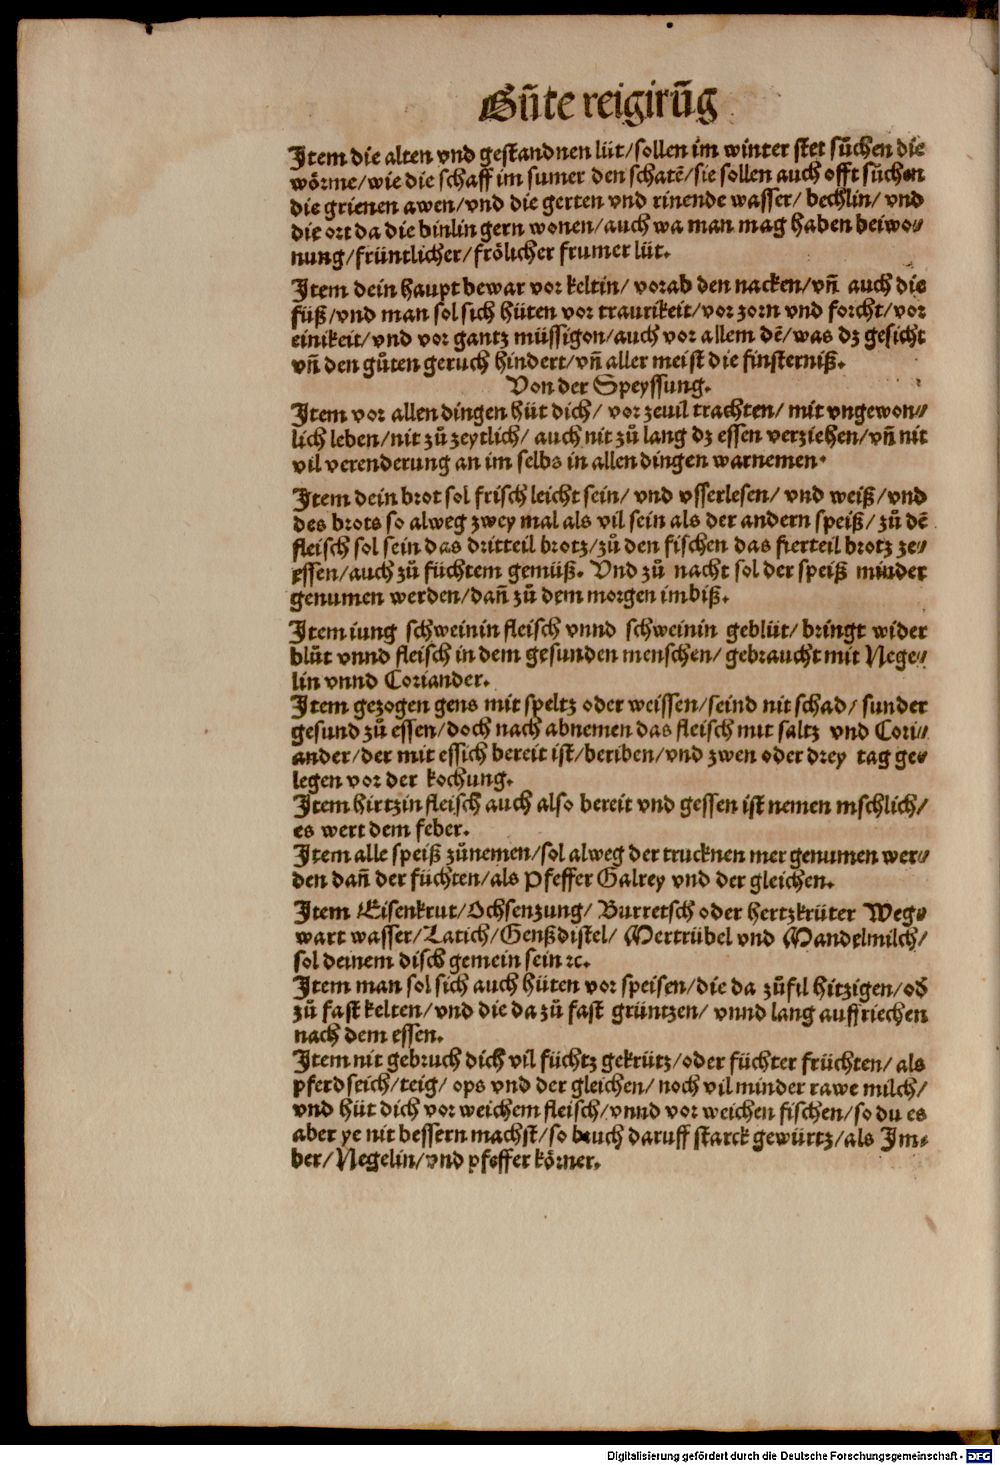 Gũte reigirũg
Item die alten vnd gestandnen lüt/sollen im winter stet sũchen die
wörme/wie die schaff im sumer den schatē/sie sollen auch offt sũchen
die grienen awen/vnd die gerten vnd rinende wasser/ bechlin/ vnd
die ort da die binlin gern wonen/auch wa man mag haben beiwo⸗
nung/früntlicher/frölicher frumer lüt.
Item dein haupt bewar vor keltin/ vorab den nacken/vñ auch die
füß/vnd man sol sich hüten vor traurikeit/vor zorn vnd forcht/vor
einikeit/vnd vor gantz müssigon/auch vor allem dē/was dz gesicht
vñ den gůten geruch hindert/vñ aller meist die finsterniß.
Von der Speyssung.
Item vor allen dingen hüt dich/ vor zeuil trachten/ mit vngewon⸗
lich leben/nit zů zeytlich/ auch nit zů lang dz essen verziehen/vñ nit
vil verenderung an im selbs in allen dingen warnemen.
Item dein brot sol frisch leicht sein/ vnd vsserlesen/ vnd weiß/vnd
des brots so alweg zwey mal als vil sein als der andern speiß/ zů dē
fleisch sol sein das dritteil brotz/zů den fischen das fierteil brotz ze⸗
essen/auch zů füchtem gemüß. Vnd zů nacht sol der speiß minder
genumen werden/dañ zů dem morgen imbiß.
Item iung schweinin fleisch vnnd schweinin geblüt/ bringt wider
blůt vnnd fleisch in dem gesunden menschen/ gebraucht mit Nege⸗
lin vnnd Coriander.
Item gezogen gens mit speltz oder weissen/seind nit schad/ sunder
gesund zů essen/doch nach abnemen das fleisch mit saltz vnd Cori⸗
ander/der mit essich bereit ist/beriben/vnd zwen oder drey tag ge⸗
legen vor der kochung.
Item hirtzin fleisch auch also bereit vnd gessen ist nemen mschlich/
es wert dem feber.
Item alle speiß zůnemen/sol alweg der trucknen mer genumen wer⸗
den dañ der füchten/als Pfeffer Galrey vnd der gleichen.
Item Eisenkrut/Ochsenzung/ Burretsch oder hertzkrüter Weg⸗
wart wasser/Latich/Genßdistel/ Mertrübel vnd Mandelmilch/
sol deinem disch gemein sein ⁊c.
Item man sol sich auch hüten vor speisen/die da zůfil hitzigen/oď
zů fast kelten/vnd die da zů fast grüntzen/ vnnd lang auffriechen
nach dem essen.
Item nit gebruch dich vil füchtz gekrütz/oder füchter früchten/ als
pferdseich/teig/ ops vnd der gleichen/ noch vil minder rawe milch/
vnd hüt dich vor weichem fleisch/vnnd vor weichen fischen/so du es
aber ye nit bessern machst/so bruch daruff starck gewürtz/als Im⸗
ber/Negelin/vnd pfeffer körner.
Digitalisierung gefördert durch die Deutsche Forschungsgemeinschaft - DFG